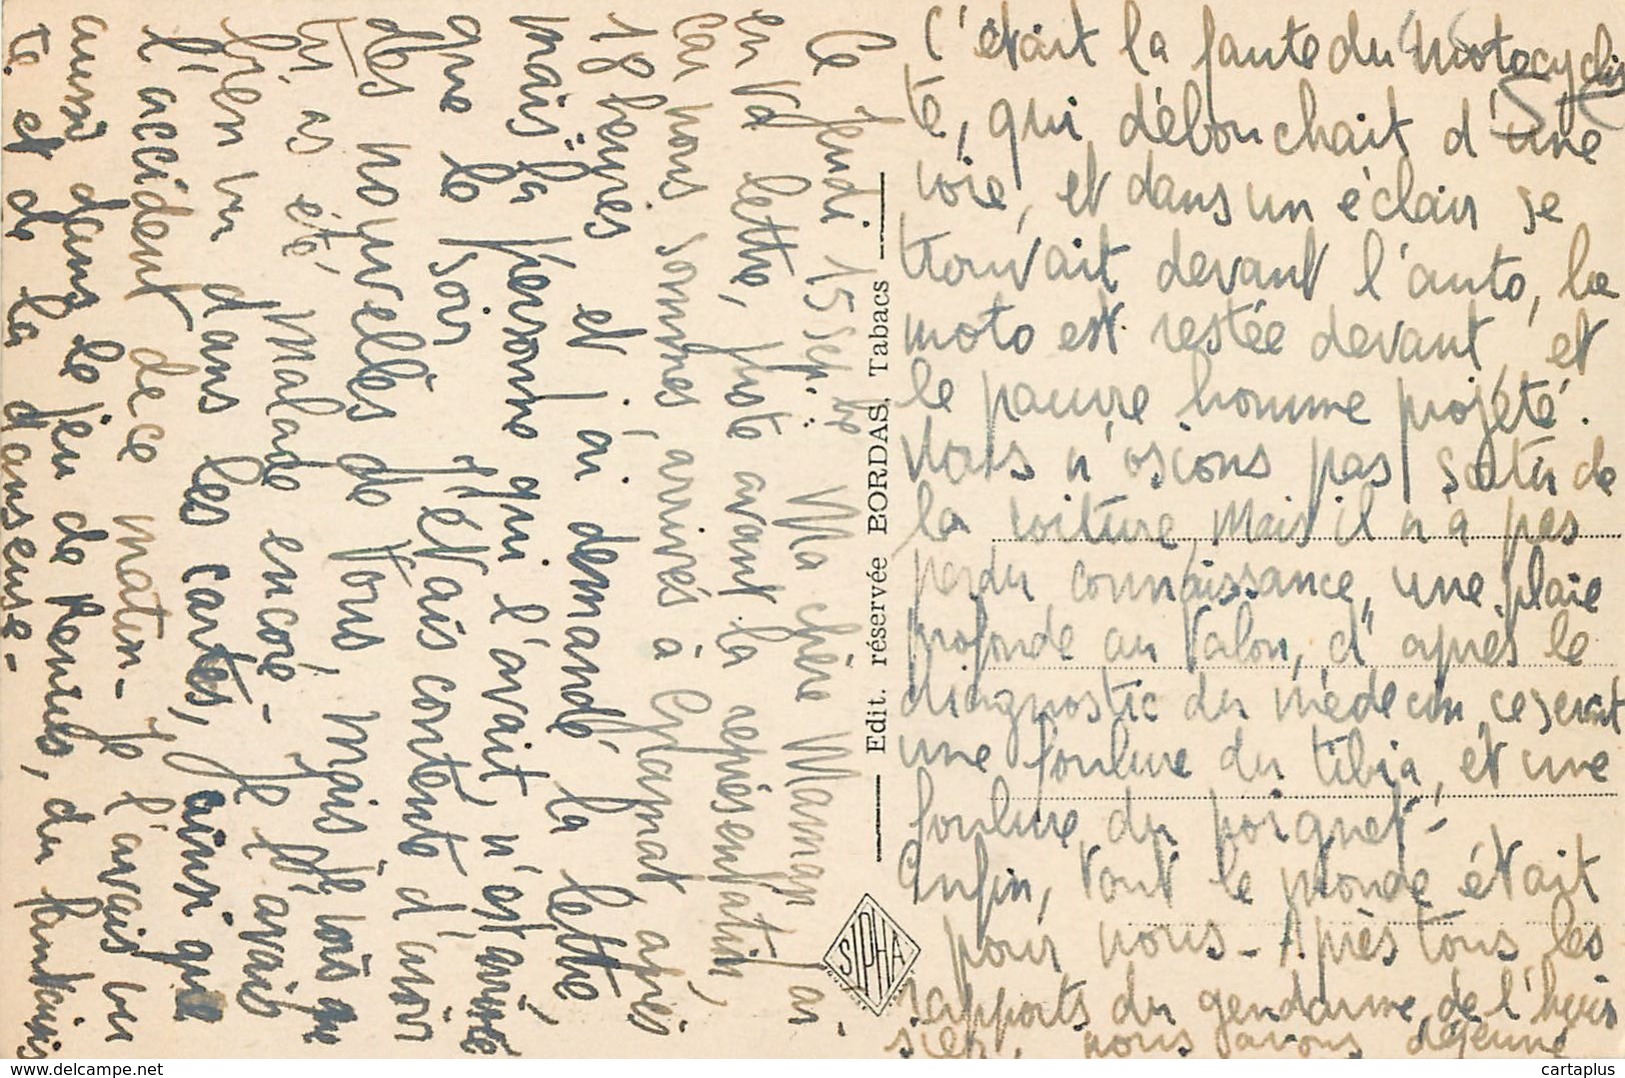 Ce Jeudi 15 Sept. Ma chère Maman J'ai
eu ta lettre, juste avant la représentation,
car nous sommes, arrivés à Gramat, après
18 heures et j'ai demandé la lettre,
mais la personne qui l'avait, n'est arrivée
que le soir, j'étais contente d'avoir
des nouvelles de vous, mais je vois que
tu as été malade encore - Je l'avais
bien vu dans les cartes, ainsi que
l'accident de ce matin - Je l'avais vu
aussi dans le jeu de Remules, du fantaisis
te. et de la danseuse -
C'était la faute du motocyclis
te, qui débouchait d'une
voie, et dans un éclair se
trouvait devant l'auto, la
moto est restée devant, et
le pauvre homme projeté.
Nous n'osions pas sortir de
la voiture, mais il n'a pas
perdu connaissance, une plaie
profonde au talon, d'après le
diagnostic du médecin, ce serait
une foulure du tibia, et une
foulure du poignet -
Enfin, tout le monde était
pour nous - Après tous les
rapports du gendarme de l'huis
sier, nous avons déjeuné
Edit. réservée BORDAS, Tabacs
SIPHA
www.delcampe.net
cartaplus